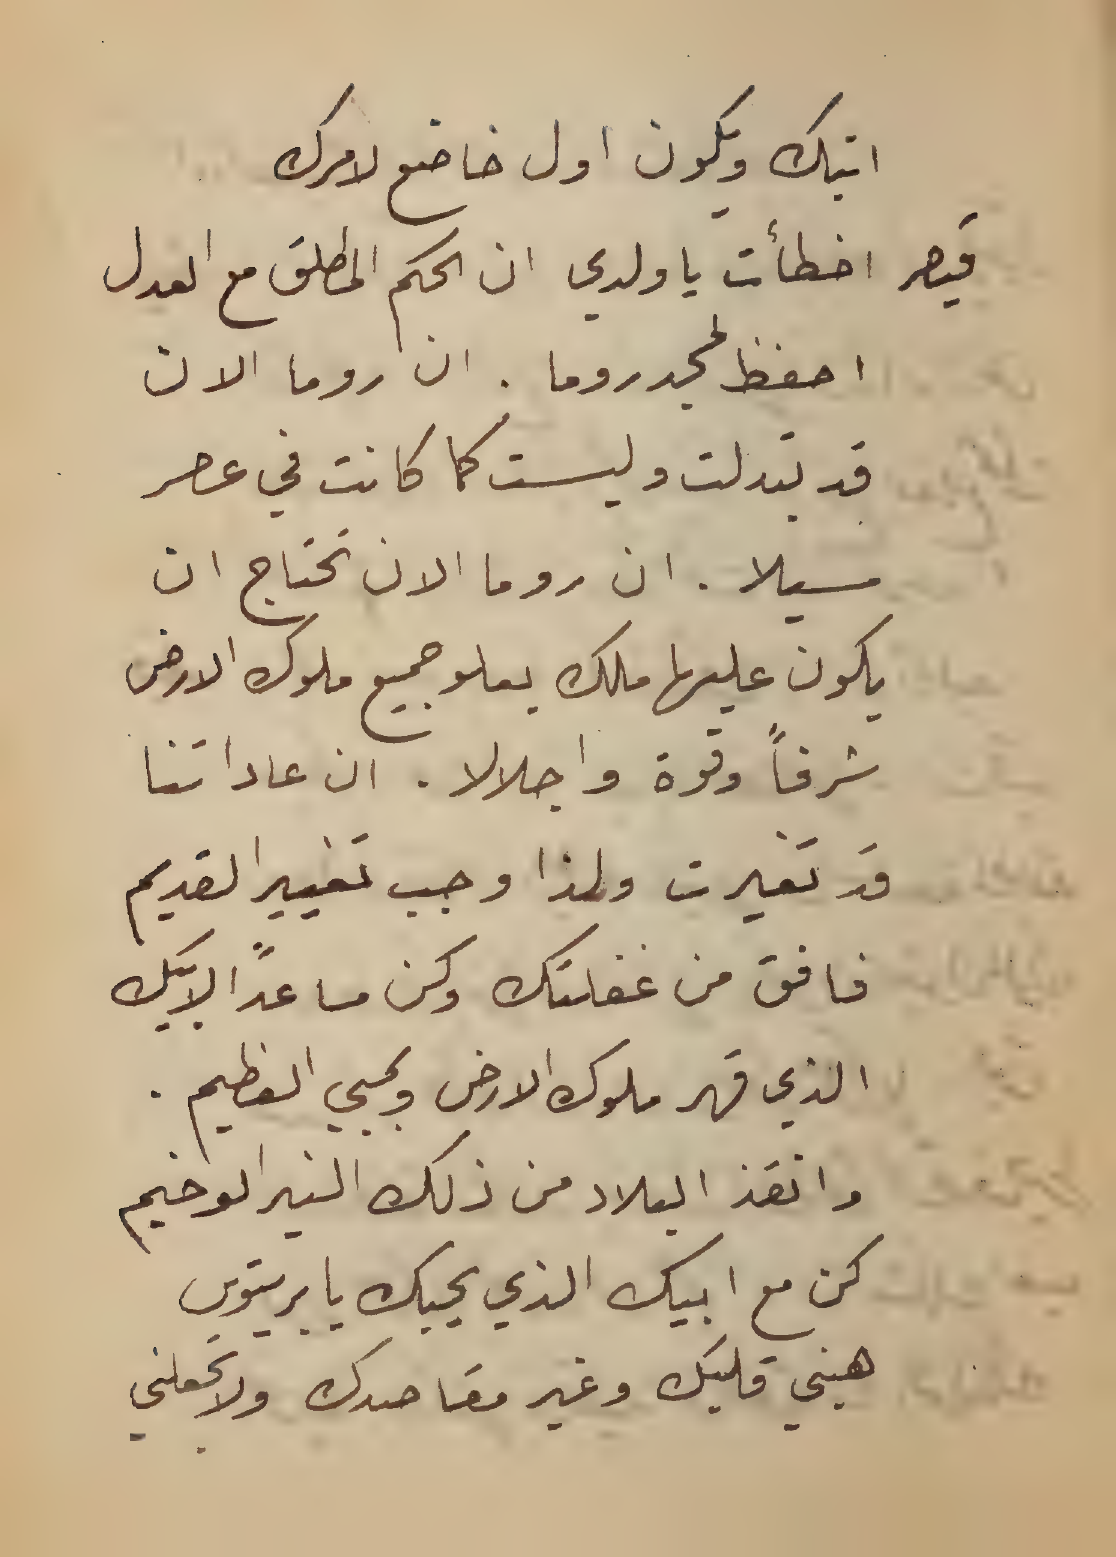 ابنك ويكون اول خاضع لامرك
قيصر اخطأت يا ولدي ان الحكم المطلق مع العدل
احفظ لمجد روما . ان روما الان
قد تبدلت وليست كما كانت في عصر
سيلا . ان روما الان تحتاج ان
يكون عليها ملك يعلو جميع ملوك الارض
شرفاً وقوة واجلالا . ان عاداتنا
قد تغيرت ولذا وجب تغيير القديم
فافق من غفلتك وكن مساعداً لابيك
الذي قهر ملوك الارض وبحبي العظيم .
وانقذ البلاد من ذلك النير الوخيم
كن مع ابيك الذي يحبك يا بريتوس
هبني قلبك وغير مقاصدك ولا تجعلني